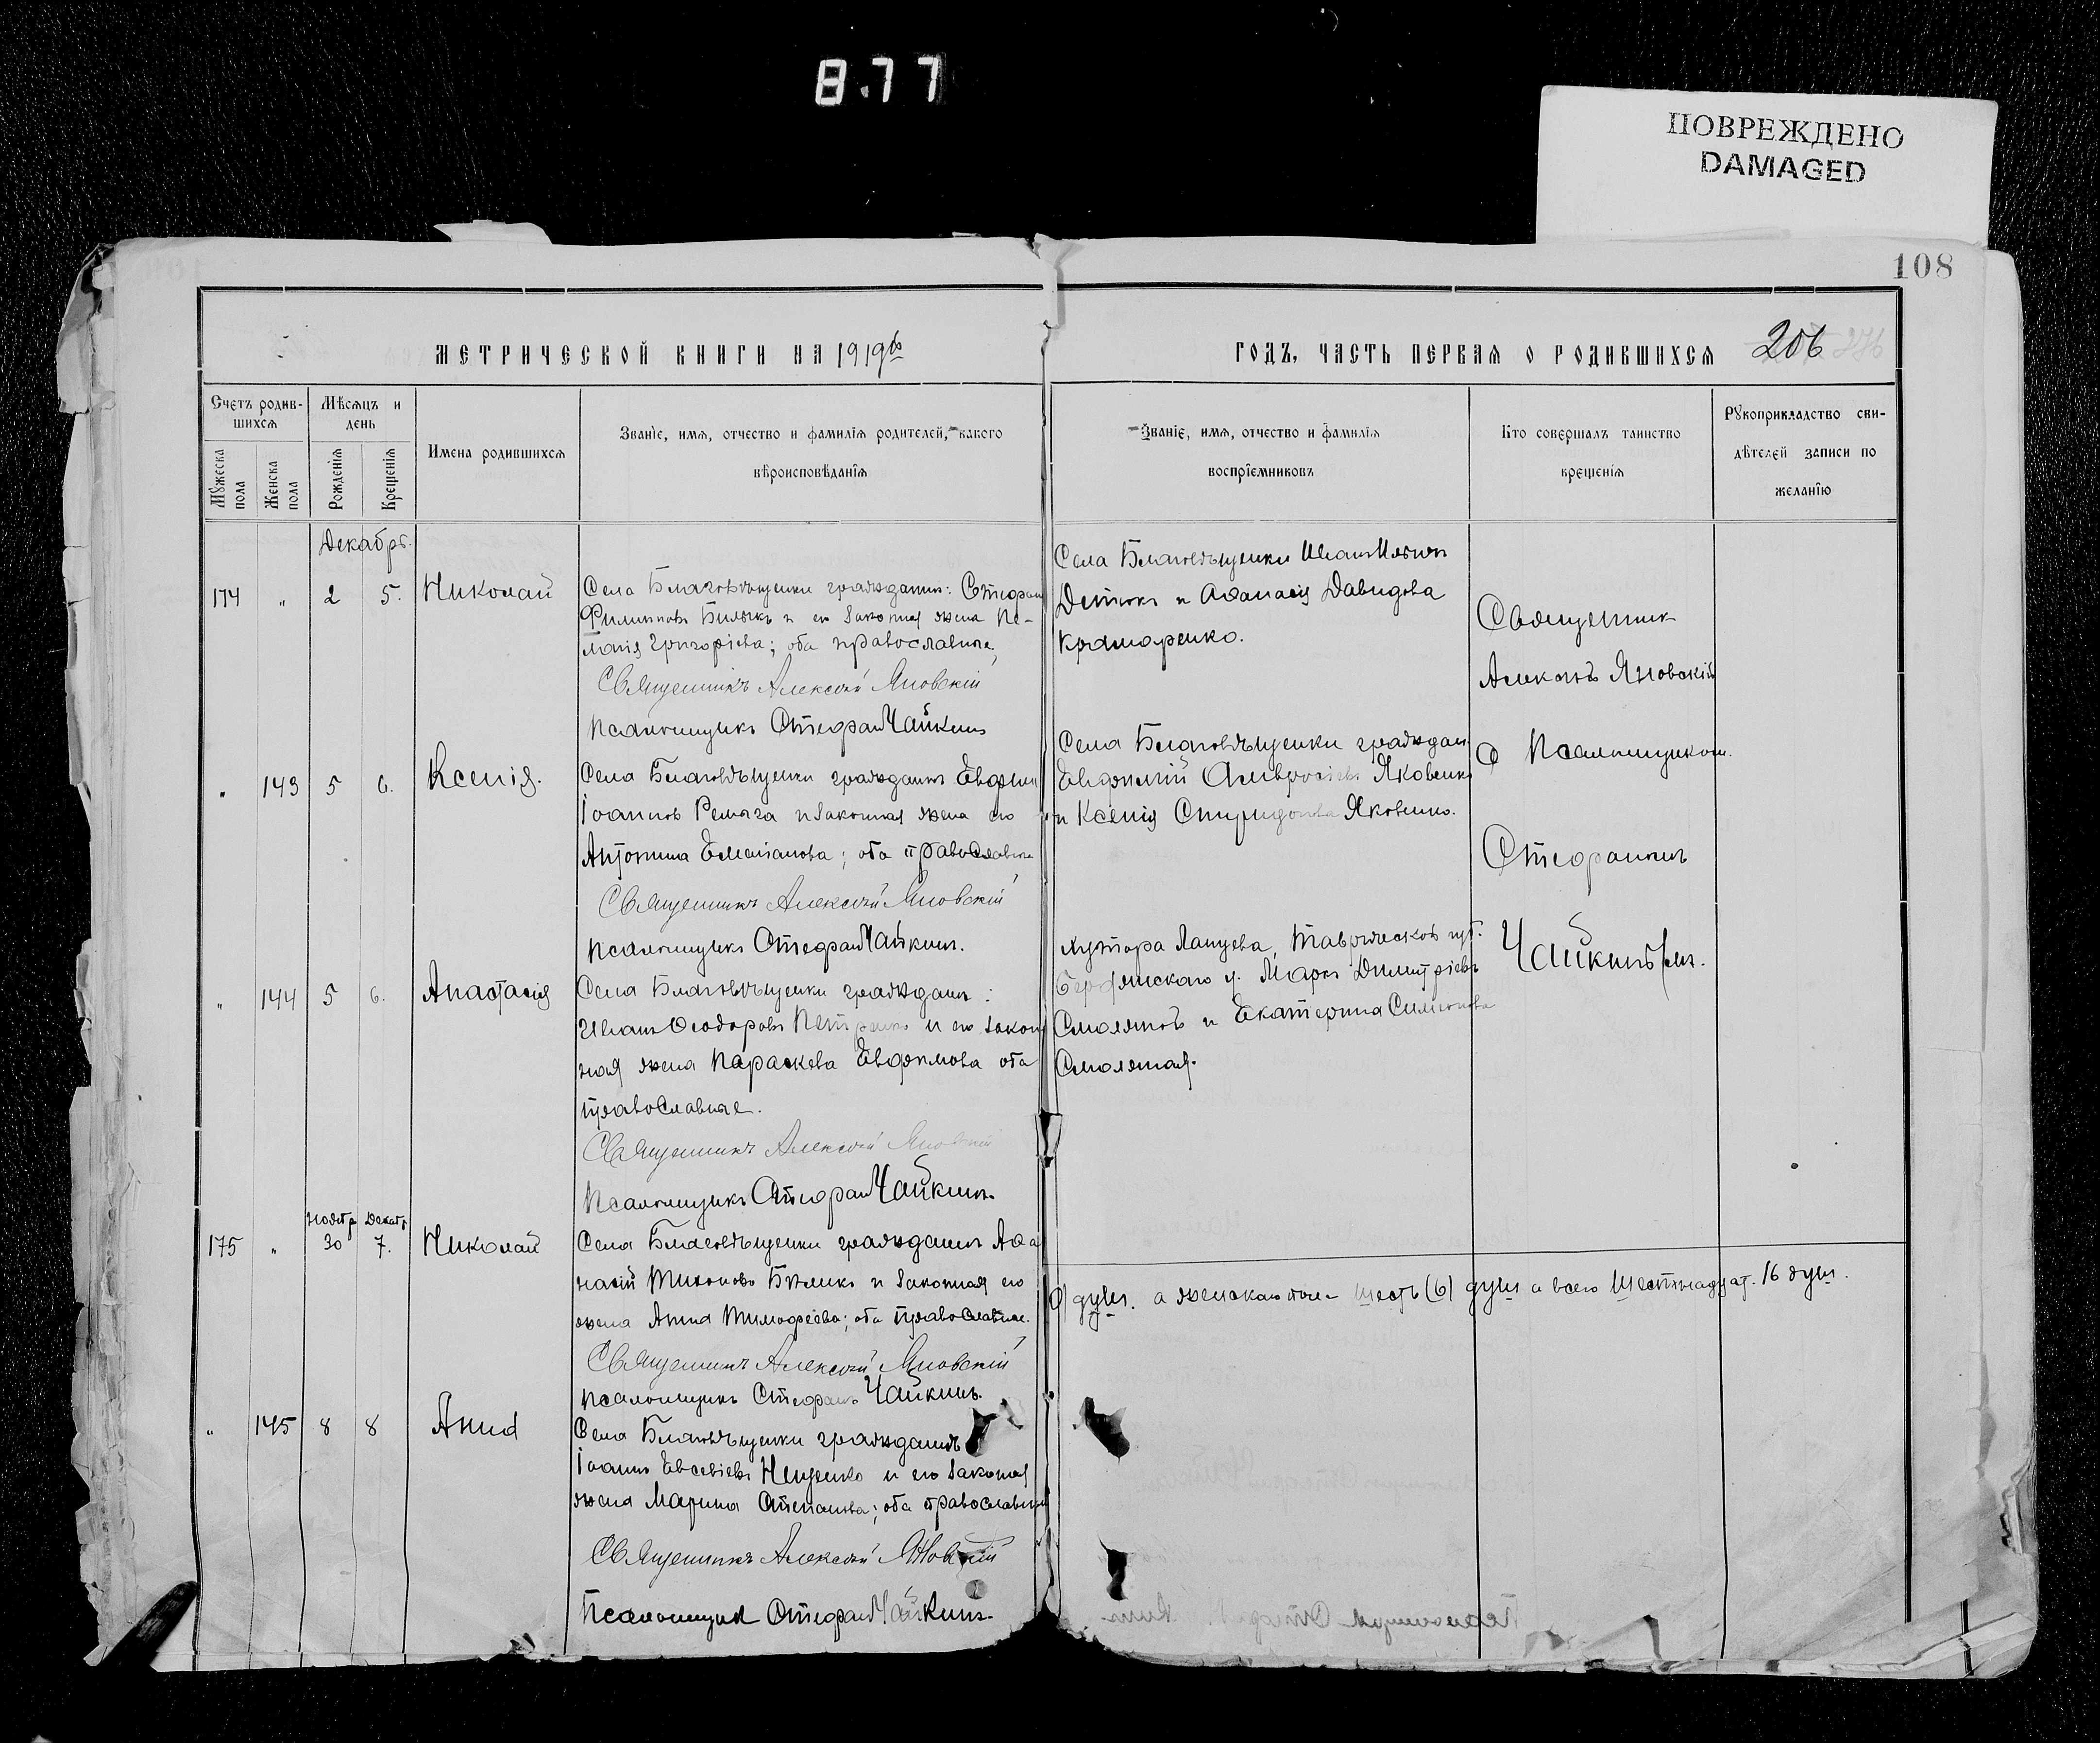 8.77
ПОВРЕЖДЕНО
DAMAGED
108
МЕТРИЧЕСКОЙ КНИГИ НА 1919
ГОДЪ, ЧАСТЬ ПЕРВАЯ О РОДИВШИХСЯ 206
Счетъ родив-
шихся
Мѣсяцъ и
день
Мужеска
пола
Женска
пола
Рожденія
Крещенія
Имена родившихся
Званіе, имя, отчество и фамилія родителей, какого
вѣроисповѣданія
Званіе, имя, отчество и фамилія
воспріемниковъ
Кто совершалъ таинство
крещенія
Рукоприкладство сви-
дѣтелей записи по
желанію
Декабрь.
174 " 2 5. Николай
Села Благовѣщенки гражданинъ: Стефанъ
Филипповъ Билыкъ и его законная жена Пе-
лагія Григоріева; оба православные,
Священникъ Алексѣй Яновскій
Псаломщикъ Стефанъ Чайкинъ
Села Благовѣщенки Иванъ
и Аѳанасія Давидова
Крамаренко.
Священник
Алексѣй Яновскій
с Псаломщиком.
Стефаномъ
Чайкинымъ.
" 143 5 6. Ксенія.
Села Благовѣщенки гражданинъ Евфимій
Іоанновъ Ремыга и законная жена его
Антонина Емельянова; оба православные
Священникъ Алексѣй Яновскій
Псаломщикъ Стефанъ Чайкинъ.
Села Благовѣщенки граждан.
Евфимій Амвросіевъ Яковенко
и Ксенія Спиридонова Яковенко.
" 144 5 6. Анастасія
Села Благовѣщенки гражданинъ:
Иванъ Ѳеодоровъ Петренко и его закон
ная жена Параскева Евфимова оба
православные.
Священникъ Алексѣй Яновскій
Псаломщикъ Стефанъ Чайкинъ.
Хутора Лапцева, Таврической губ.
Бердянскаго у. Маркъ Димитріевъ
Смоляной и Екатерина Симеонова
Смоляная.
Ноябр Декабр
175 " 30 7. Николай
Села Благовѣщенки гражданинъ Аѳа
насій Тихоновъ Бѣлыкъ и законная его
жена Анна Тимофеева; оба православные.
Священникъ Алексѣй Яновскій
Псаломщикъ Стефанъ Чайкинъ.
душ. а женскаго пола шесть (6) душъ а всего Шестнадцат. 16 душ.
" 145 8 8 Анна
Села Благовѣщенки гражданинъ
Іоаннъ Евсевіевъ Нещенко и его законная
жена Марина Степанова; оба православные
Священникъ Алексѣй Яновскій
Псаломщикъ Стефанъ Чайкинъ.